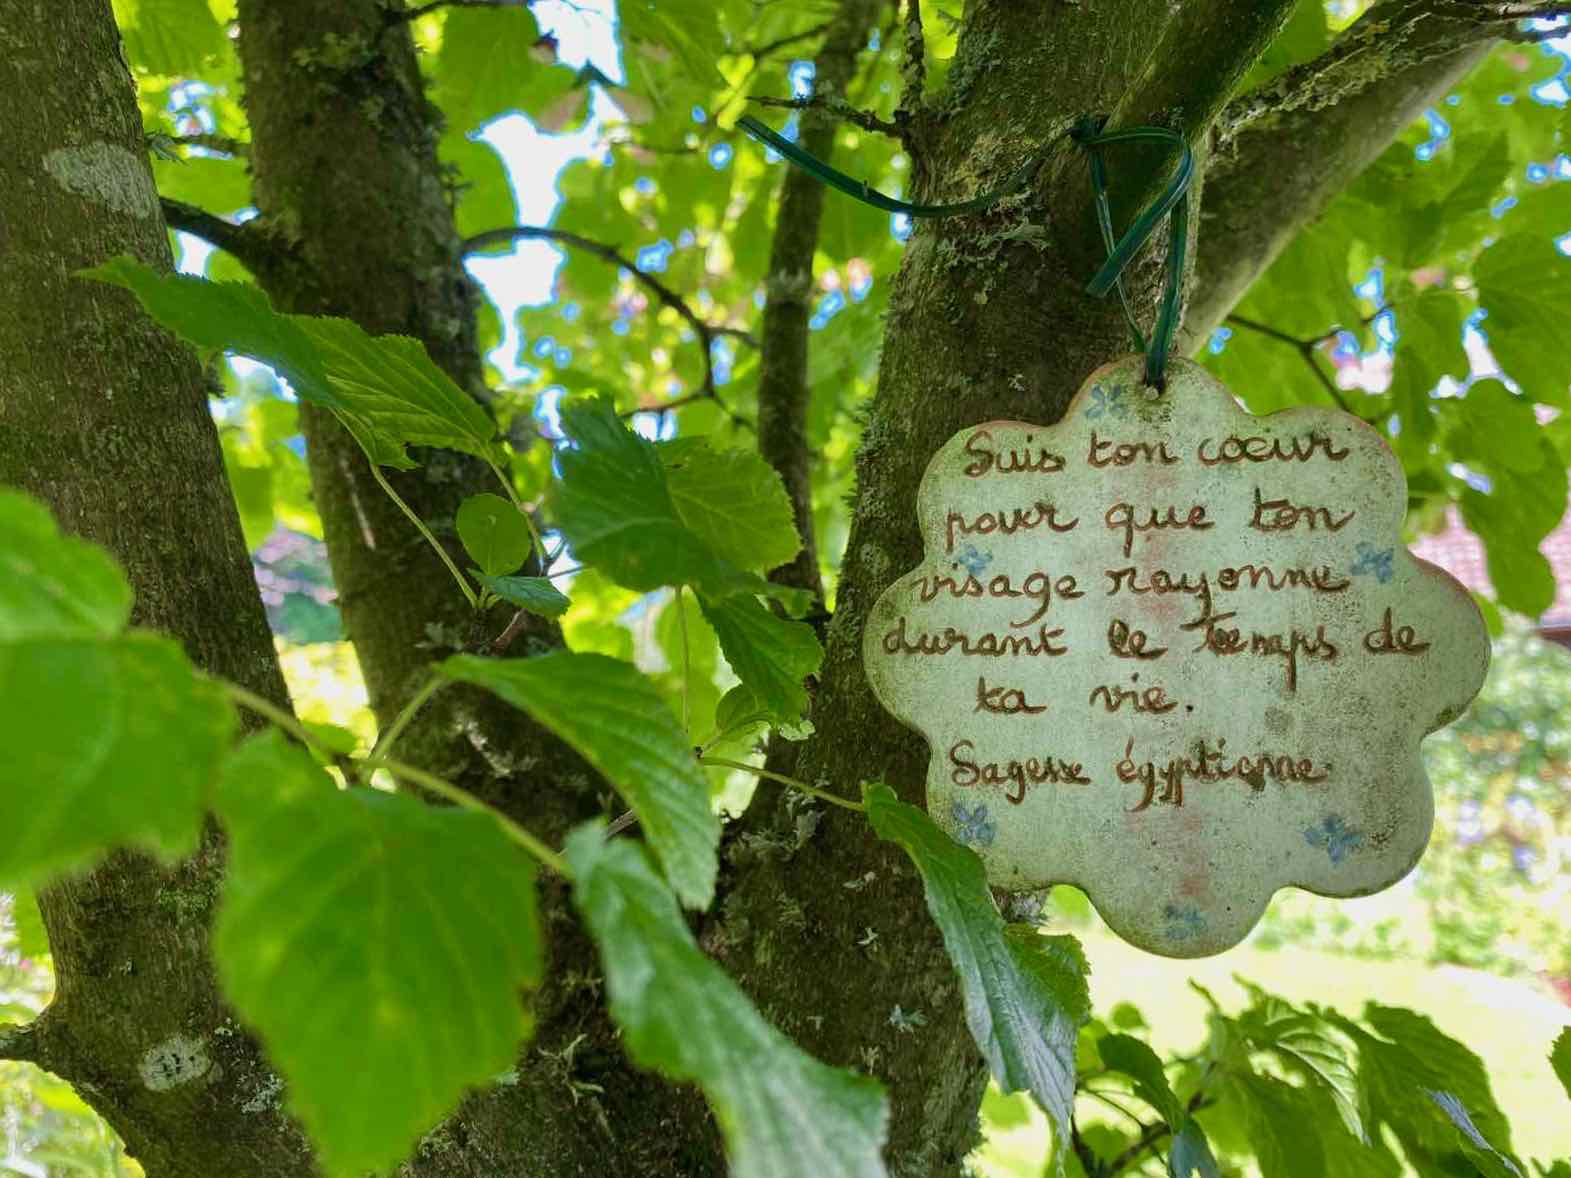 Suis ton coeur
pour que ton
visage rayonne
durant le temps de
ta vie.
Sagesse égyptienne.